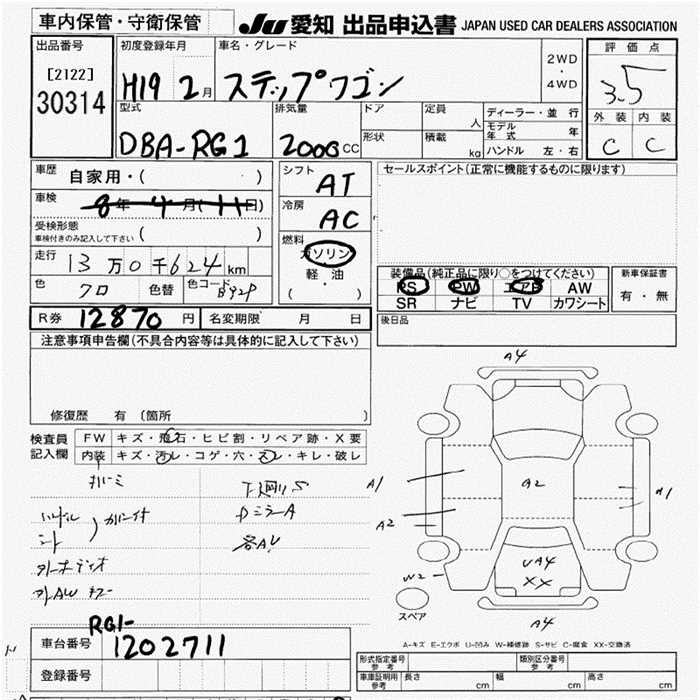 車内保管・守衛保管
JU 愛知 出品申込書 JAPAN USED CAR DEALERS ASSOCIATION
出品番号 初度登録年月 車名・グレード 評価点
[2122]
30314
H19 2月 ステップワゴン
2WD
・
4WD
3.5
型式 排気量 ドア 定員 人 ディーラー・並行
外装 内装
DBA-RG1 2000CC
形状 積載 kg
モデル年式 年
ハンドル 左・右
C C
車歴 自家用・( )
シフト AT
セールスポイント(正常に機能するものに限ります)
車検 8年 4月(11日)
冷房 AC
受検形態
車検付きのみ記入して下さい ( )
走行 13万0千624km
燃料 ガソリン
軽・油
( )
装備品(純正品に限り○をつけてください) 新車保証書
PS PW エアB AW
SR ナビ TV カワシート
有・無
色 クロ 色替 色コード B92P
R券 12870円 名変期限 月 日
後日品
注意事項申告欄(不具合内容等は具体的に記入して下さい)
修復歴 有 (箇所 )
検査員
記入欄
FW キズ・飛石・ヒビ割・リペア跡・X要
内装 キズ・汚レ・コゲ・穴・スレ・キレ・破レ
ハンドル
シート
A4
A1
A2
A2
A1
W2
UA4
XX
スペア
A4
A-キズ E-エクボ U-凹み W-補修跡 S-サビ C-腐食 XX-交換済
車台番号 RG1-
1202711
登録番号
形式指定番号
参考
類別区分番号
参考
車庫証明用
参考
長さ cm 幅 cm 高さ cm